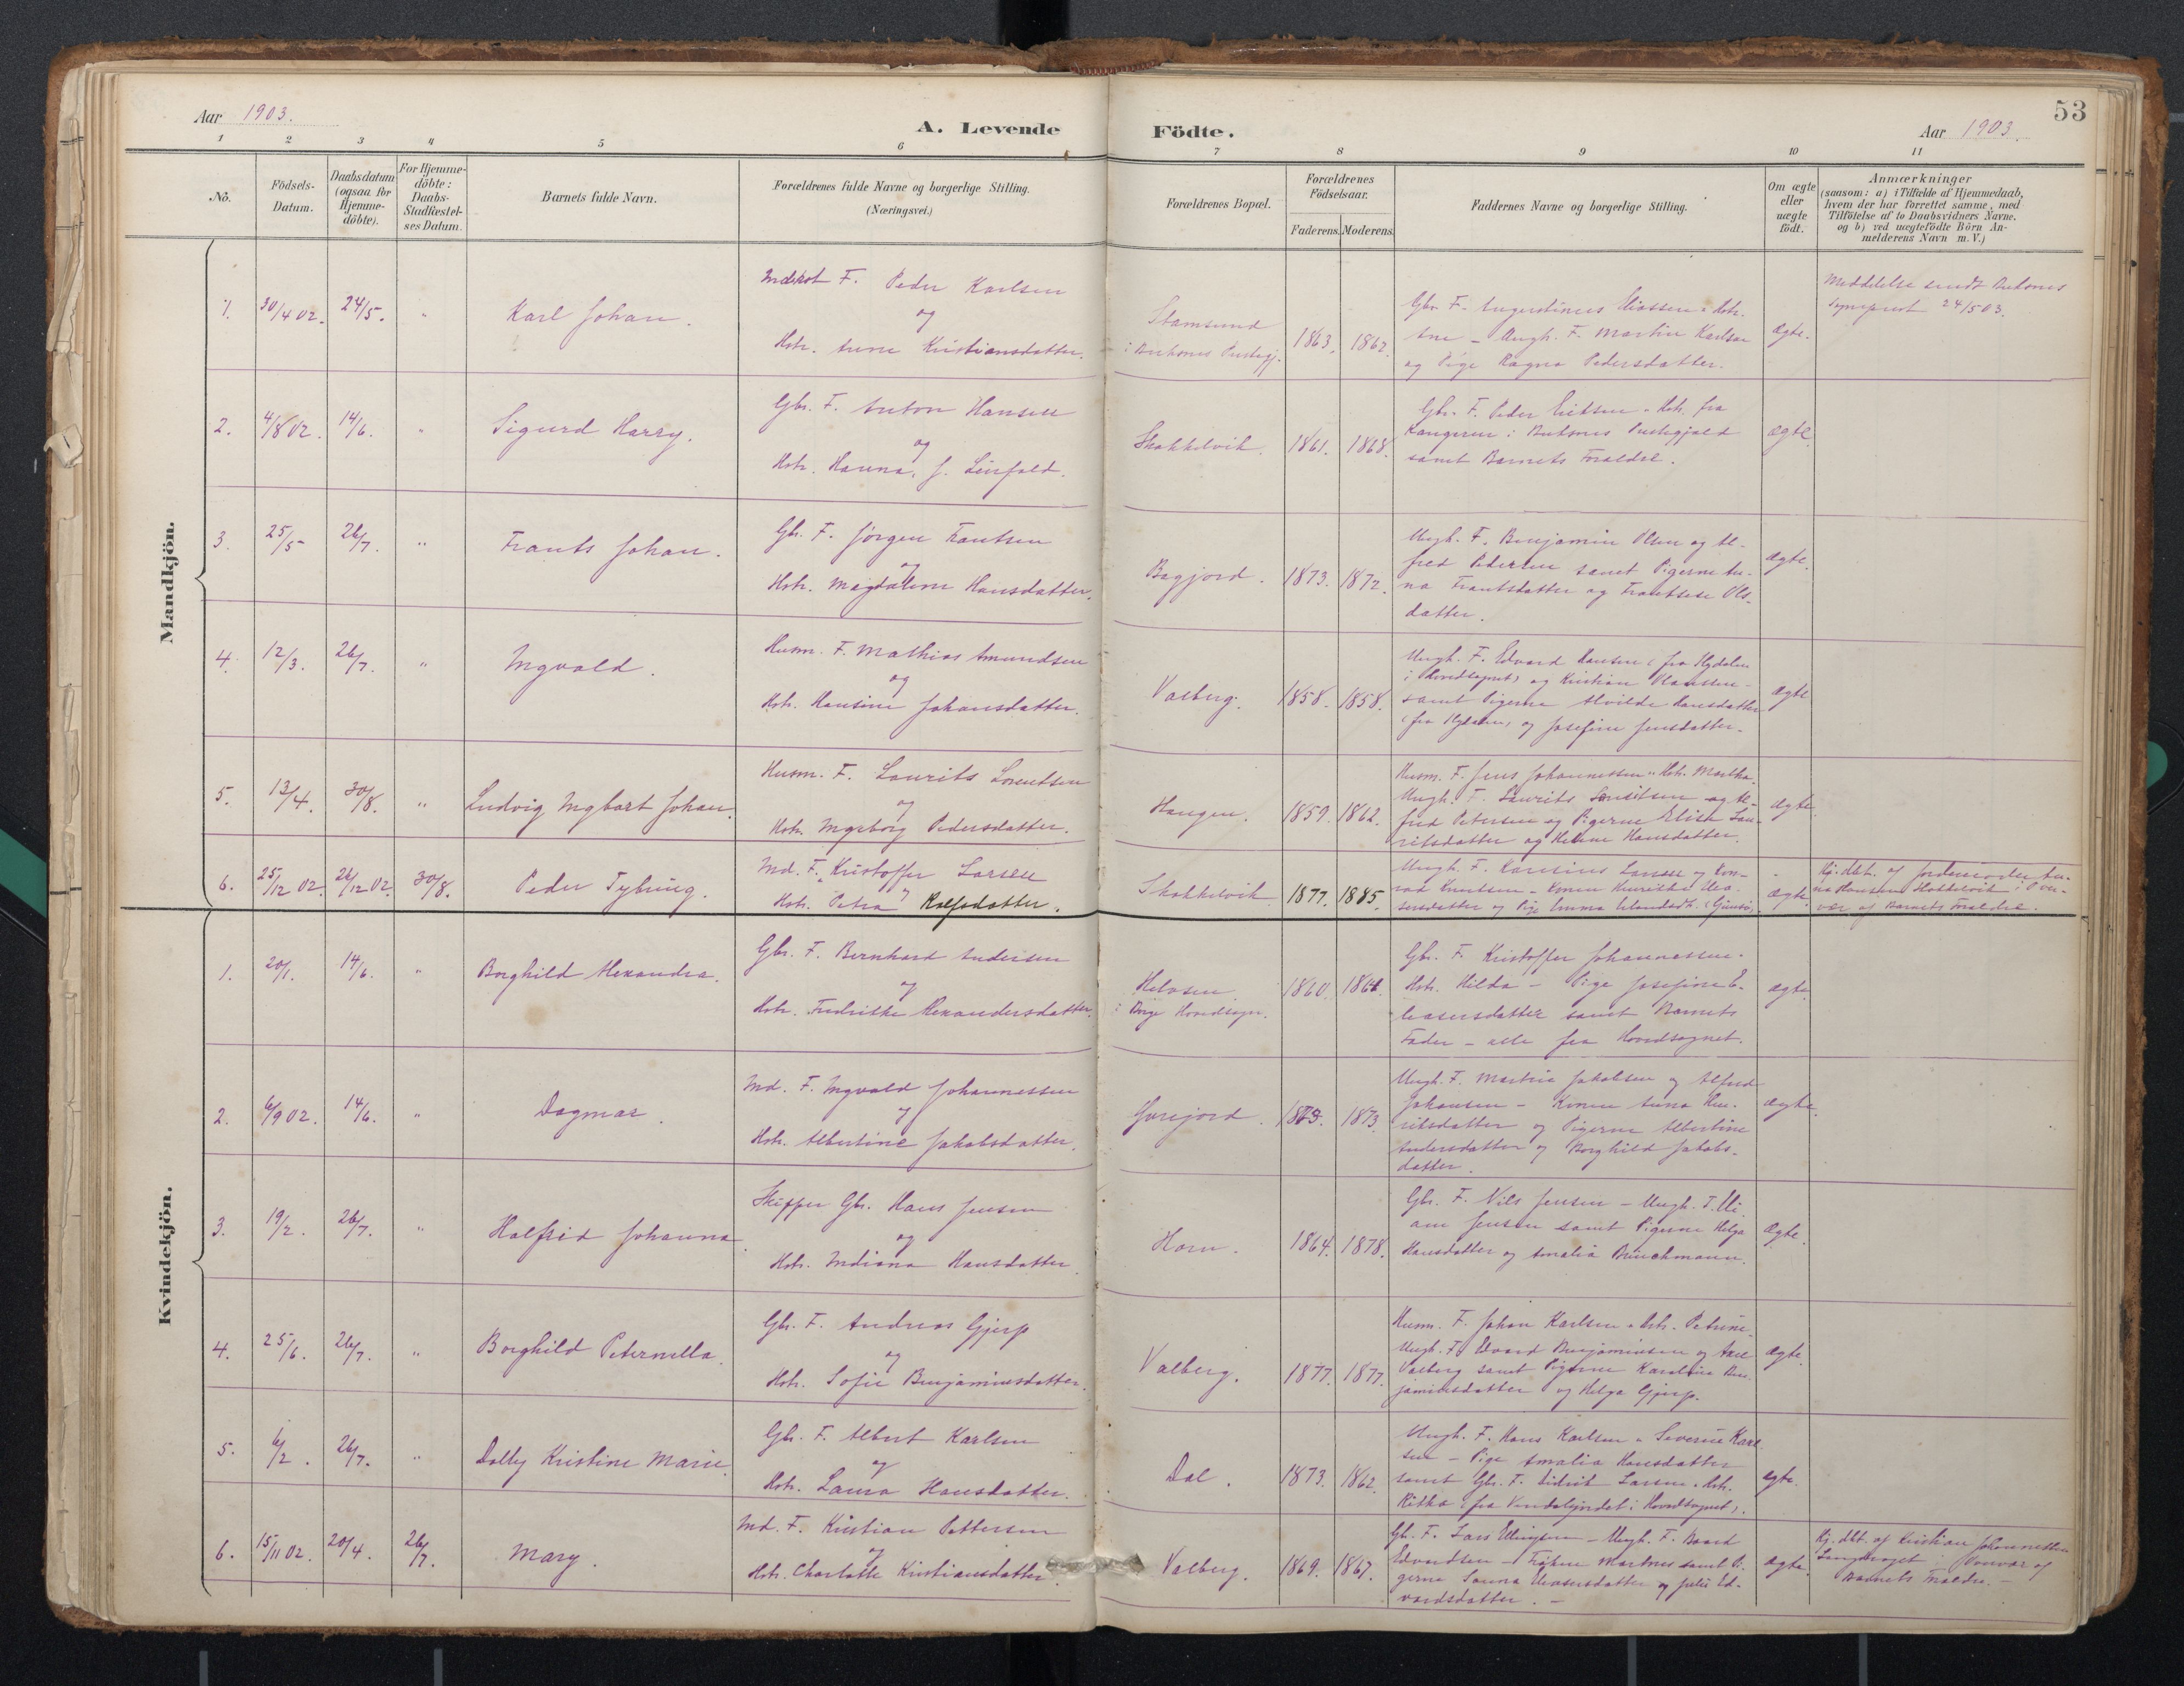 Aar 1903.
A. Levende
Födte.
Aar 1903.
53
1 2 3 4 5 6 7 8 9 10 11
No.
Födsels-
Datum.
Daabsdatum
(ogsaa for
Hjemme-
döbte).
For Hjemme-
döbte:
Daabs-
Stadfæstel-
ses Datum.
Barnets fulde Navn.
Forældrenes fulde Navne og borgerlige Stilling.
(Næringsvei.)
Forældrenes Bopæl.
Forældrenes
Födselsaar.
Faderens. Moderens.
Faddernes Navne og borgerlige Stilling.
Om ægte
eller
uægte
födt.
Anmærkninger
(saasom: a) i Tilfælde af Hjemmedaab,
hvem der har forrettet samme, med
Tilföielse af to Daabsvidners Navne.
og b) ved uægtefödte Börn An-
melderens Navn m. V.)
Mandkjön.
1. 30/4 02. 24/5. " Karl Johan.
Inderst F. Peder Karlsen
og
Hstr. Anne Kristiansdatter.
Stamsund
i Buksnes Præstegj.
1863. 1862.
Gbr. F. Augustinus Eliassen " Hstr.
Ane - Ungk. F. Martin Karlsen
og Pige Ragna Pedersdatter.
ægte.
Meddelelse sendt Buksnes
Sogneprest 24/5 03.
2. 4/8 02. 14/6. " Sigurd Harry.
Gbr. F. Anton Hansen
og
Hstr. Hanna, f. Leirfald.
Skokkelvik. 1861. 1868.
Gbr. F. Peder Eritsen " Hstr. fra
i Buksnes Præstegjæld
samt Barnets Forældre.
ægte.
3. 25/5 26/7. " Frants Johan.
Gbr. F. Jörgen Frantsen
og
Hstr. Magdalene Hansdatter.
Bagjord. 1873. 1872.
Ungk. F. Benjamin Olsen og Al-
fred Pedersen samt Pigerne An-
na Frantsdatter og Frantsese Ols-
datter.
ægte.
4. 12/3. 26/7. " Ingvald.
Husm. F. Mathias Amundsen
og
Hstr. Hansine Johansdatter.
Valberg. 1858. 1858.
Ungk. F. Edvard Hansen (fra Hydalen
i Hovedsognet) og Kristian Claussen -
samt Pigerne Alvilde Hansdatter
(fra Hydalen) og Josefine Jensdatter.
ægte
5. 13/4. 30/8. " Ludvig Ingbart Johan.
Husm. F. Laurits Lorentsen
og
Hstr. Ingeborg Pedersdatter.
Haugen. 1859. 1862.
Husm. F. Jens Johannessen " Hstr. Martha.
Ungk. F. Laurits Lauritsen og Al-
fred Petersen og Pigerne Elise Lau-
ritsdatter og Helene Hansdatter.
ægte.
6. 25/12 02. 26/12 02. 30/8. Peder Tybring.
Ind. F. Kristoffer Larsen
og
Hstr. Petra Rolfsdatter.
Skokkelvik 1877. 1885.
Ungk. F. Larsen og Kon-
rad Knutsen - Konen Henrikke
og Pige Emma
ægte.
Hj. dbt. af Jordemoder An-
na Hansen Skokkelvik i Over-
vær af Barnets Forældre.
Kvindekjön.
1. 20/1. 14/6. " Borghild Alexandra.
Gbr. F. Bernhard Andersen
og
Hstr. Fredrikke Alexandersdatter.
Helosen
i Borge Hovedsogn.
1860. 1864.
Gbr. F. Kristoffer Johannessen.
Hstr. Hilda - Pige Josefine E-
leasersdatter samt Barnets
Fader - alle fra Hovedsognet.
ægte
2. 6/9 02. 14/6. " Dagmar.
Ind. F. Ingvald Johannessen
og
Hstr. Albertine Jakobsdatter.
Gorejord. 1873. 1873.
Ungk. F. Martin Jakobsen og Alfred
Johansen - Konen Anna Hen-
riksdatter og Pigerne Albertine
Andersdatter og Borghild Jakobs-
datter.
ægte.
3. 19/2. 26/7. " Halfrid Johanna.
Skipper Gbr. Hans Jensen
og
Hstr. Indiana Hansdatter
Horn. 1864. 1878.
Gbr. F. Nils Jensen - Ungk. F. Uli-
am Jensen samt Pigerne Helga
Hansdatter og Amalia Brinchmann.
ægte.
4. 25/6. 26/7. " Borghild Peternella.
Gbr. F. Andreas Gjerp
og
Hstr. Sofie Benjaminsdatter.
Valberg. 1877. 1877.
Husm. F. Johan Karlsen " Hstr. Petrine.
Ungk. F. Edvard Benjaminsen og Axel
Valberg samt Pigerne Karoline Ben-
jaminsdatter og Helga Gjerp.
ægte
5. 6/2. 26/7. " Dolly Kristine Marie.
Gbr. F. Albert Karlsen
og
Hstr. Laura Hansdatter.
Dal. 1873. 1862.
Ungk. F. Hans Karlsen " Severin Karl-
sen - Pige Amalia Hansdatter
samt Gbr. F. Didrik Larsen " Hstr.
Rikka (fra i Hovedsognet).
ægte.
6. 15/11 02. 20/4. 26/7. Mary.
Ind. F. Kristian Pettersen
og
Hstr. Charlotte Kristiansdatter.
Valberg. 1869. 1867.
Gb. F. Lars Ellingsen - Ungk. F. Baard
Edvardsen - samt Pi-
gerne og Julie Ed-
vardsdatter. -
ægte.
Hj. dbt. af Kristian Johannessen
i Overvær af
Barnets Forældre. -